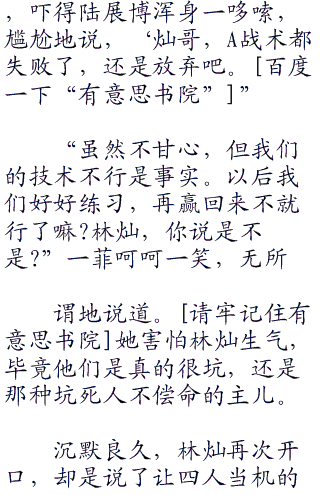 ，吓得陆展博浑身一哆嗦，
尴尬地说，‘灿哥，A战术都
失败了，还是放弃吧。[百度
一下“有意思书院”]”
“虽然不甘心，但我们
的技术不行是事实。以后我
们好好练习，再赢回来不就
行了嘛?林灿，你说是不
是?”一菲呵呵一笑，无所
谓地说道。[请牢记住有
意思书院]她害怕林灿生气，
毕竟他们是真的很坑，还是
那种坑死人不偿命的主儿。
沉默良久，林灿再次开
口，却是说了让四人当机的